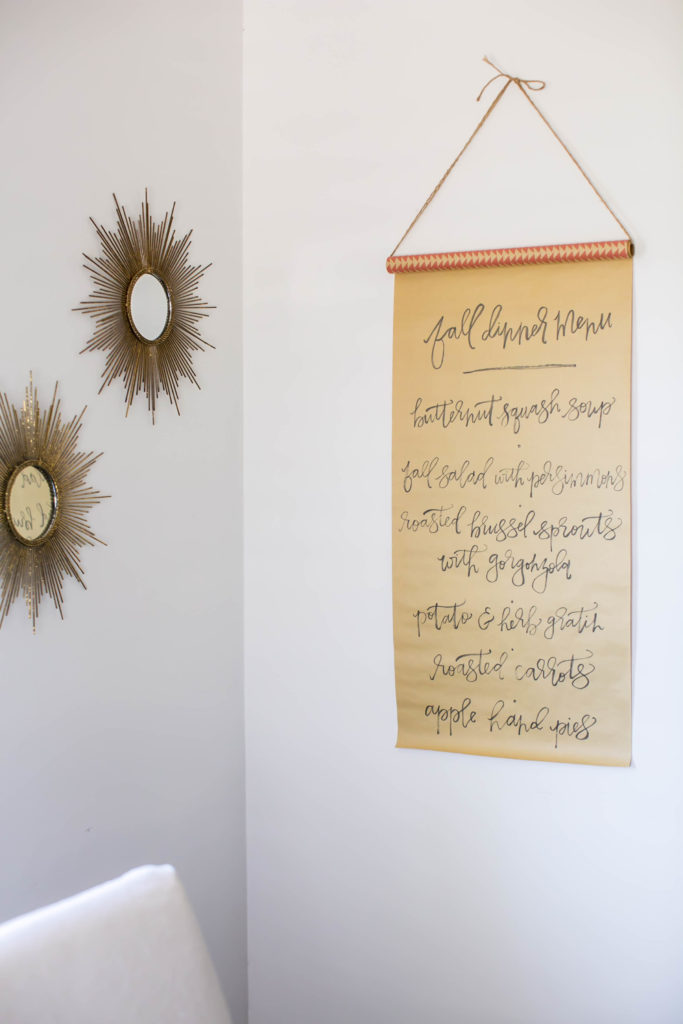 fall dinner menu
butternut squash soup
fall salad with persimmons
roasted brussel sprouts
with gorgonzola
potato & herb gratin
roasted carrots
apple hand pies